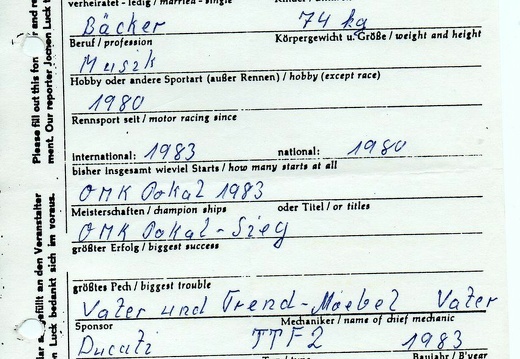 verheiratet - ledig / married - single
Bäcker 74 kg
Beruf / profession Körpergewicht u. Größe / weight and height
Musik
Hobby oder andere Sportart (außer Rennen) / hobby (except race)
1980
Rennsport seit / motor racing since
international: 1983 national: 1980
bisher insgesamt wieviel Starts / how many starts at all
OMK Pokal 1983
Meisterschaften / champion ships oder Titel / or titles
OMK Pokal-Sieg
größter Erfolg / biggest success
größtes Pech / biggest trouble
Vater und Trend-Moebel Vater
Sponsor Mechaniker / name of chief mechanic
Ducati TTF2 1983
Baujahr / B'year
Please fill out this
ment. Our reporter Jochen Luck
ausgefüllt an den Veranstalter
Luck bedankt sich im voraus.